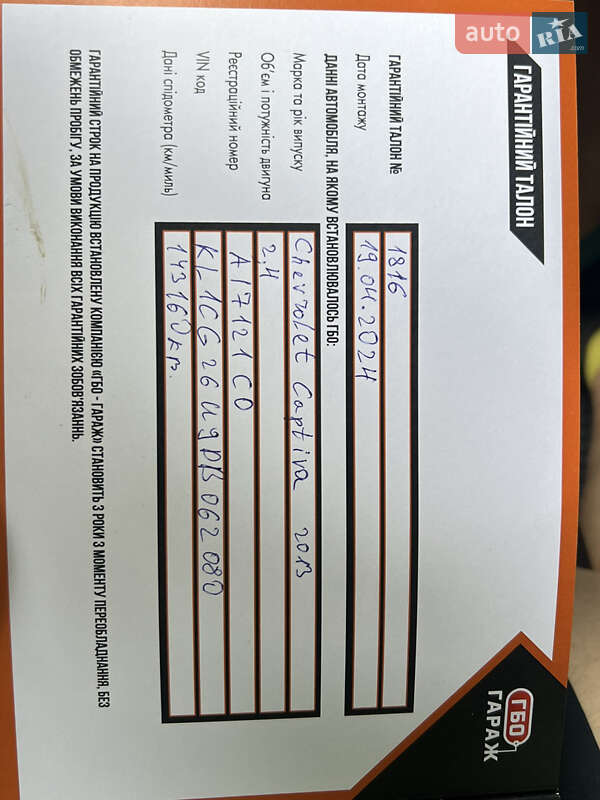 auto RIA.com
ГАРАНТІЙНИЙ ТАЛОН
ГАРАНТІЙНИЙ ТАЛОН № 1816
Дата монтажу 19.04.2024
ДАННІ АВТОМОБІЛЯ, НА ЯКОМУ ВСТАНОВЛЮВАЛОСЬ ГБО:
Марка та рік випуску Chevrolet Captiva 2013
Об'єм і потужність двигуна 2,4
Реєстраційний номер AI7121CO
VIN код KL1CG26U9DB062080
Дані спідометра (км/миль) 143160км.
ГАРАНТІЙНИЙ СТРОК НА ПРОДУКЦІЮ ВСТАНОВЛЕНУ КОМПАНІЄЮ «ГБО - ГАРАЖ» СТАНОВИТЬ 3 РОКИ З МОМЕНТУ ПЕРЕОБЛАДНАННЯ, БЕЗ
ОБМЕЖЕНЬ ПРОБІГУ, ЗА УМОВИ ВИКОНАННЯ ВСІХ ГАРАНТІЙНИХ ЗОБОВ'ЯЗАННЬ.
ГБО
ГАРАЖ